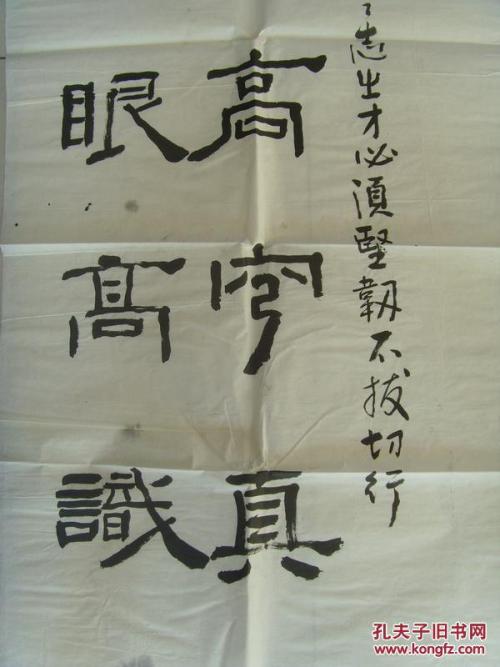 志才必須堅韌不拔切行
高真
眼高識
孔夫子旧书网
www.kongfz.com